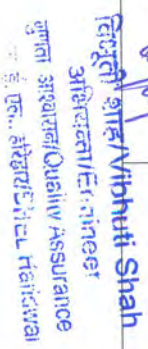 विभूती शाह/Vibhuti Shah
अभियन्ता/Engineer
गुणता आश्वासन/Quality Assurance
हरिद्वार/BHEL Haridwar